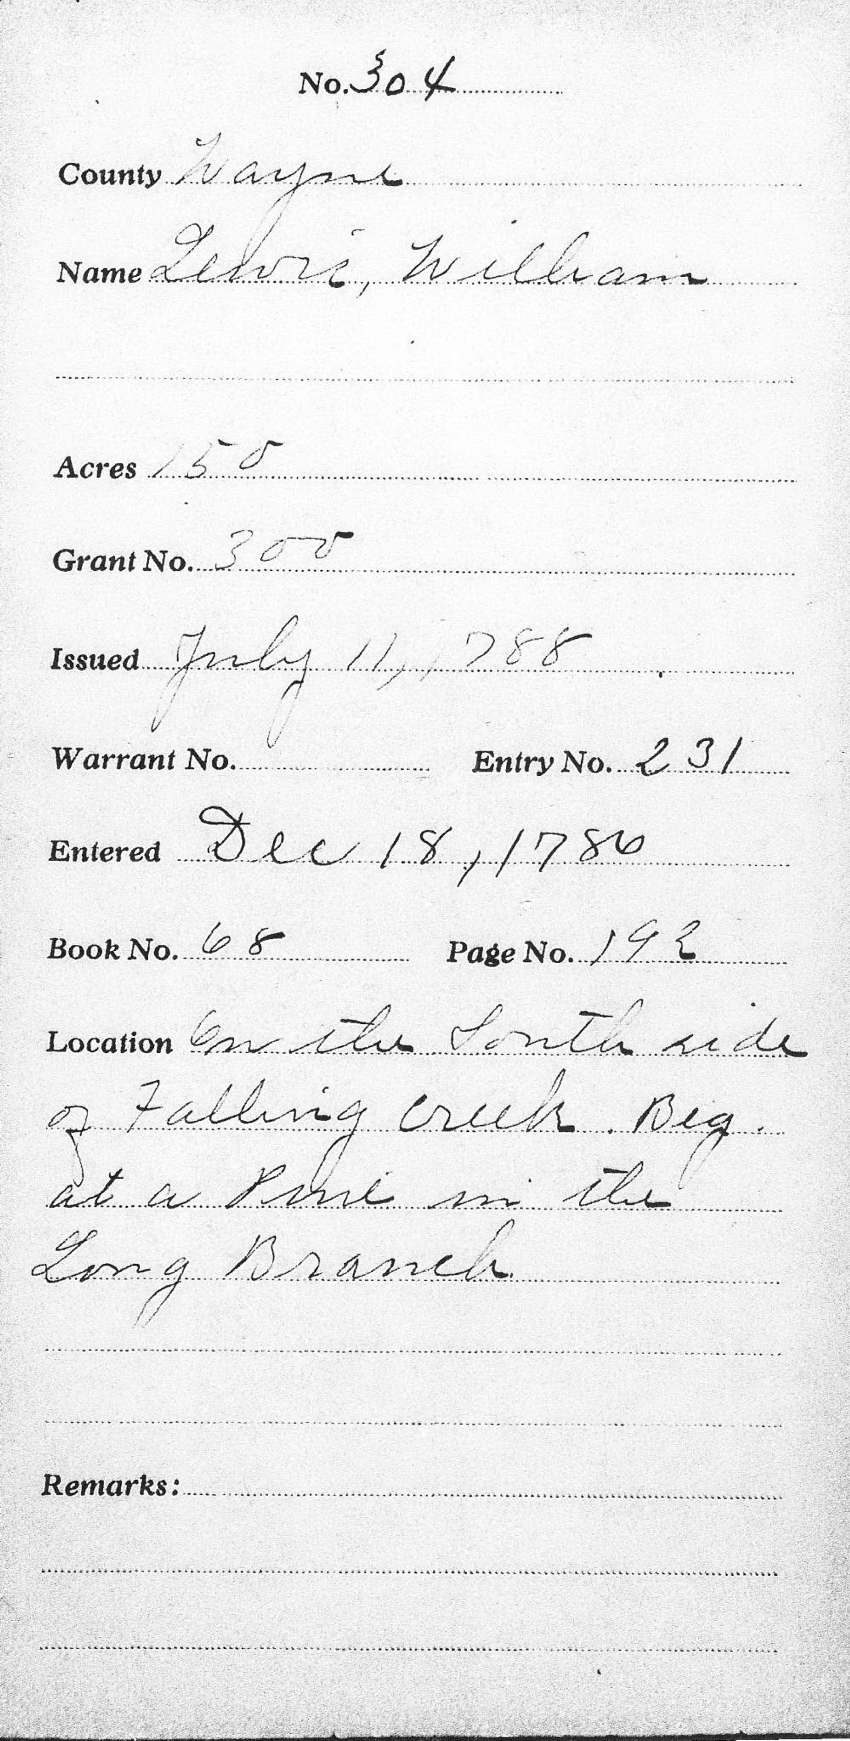 No. 304
County Wayne
Name Lewis, William
Acres 150
Grant No. 300
Issued July 11, 1788
Warrant No. Entry No. 231
Entered Dec 18, 1786
Book No. 68 Page No. 192
Location On the South side
of Falling Creek. Beg.
at a Pine in the
Long Branch
Remarks: